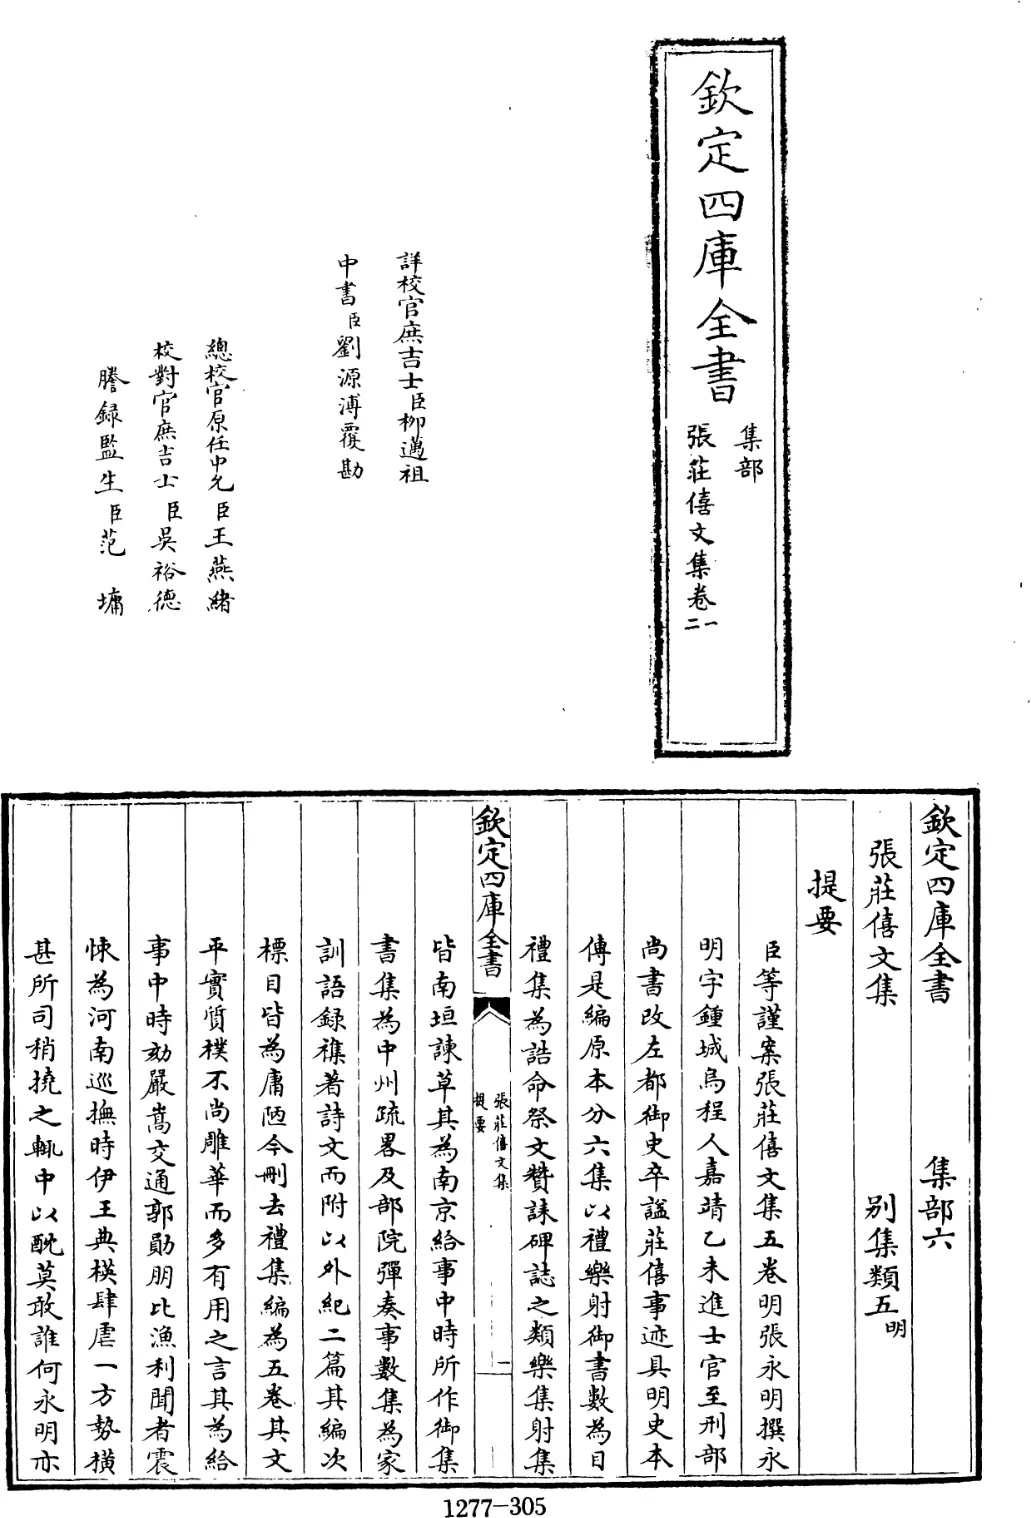 欽定四庫全書
集部
張莊僖文集卷一二
詳校官庶吉士臣柳邁祖
中書臣劉源溥覆勘
總校官原任中允臣王燕緒
校對官庶吉士臣吳裕德
謄録監生臣范墉
欽定四庫全書 集部六
張莊僖文集 别集類五明
提要
臣等謹案張莊僖文集五卷明張永明撰永
明字鍾城烏程人嘉靖乙未進士官至刑部
尚書改左都御史卒謚莊僖事迹具明史本
傳是編原本分六集以禮樂射御書數為目
禮集為誥命祭文贊誄碑誌之類樂集射集
欽定四庫全書
張莊僖文集
提要
一
皆南垣諫草其為南京給事中時所作御集
書集為中州疏畧及部院彈奏事數集為家
訓語録襍著詩文而附以外紀二篇其編次
標目皆為庸陋今刪去禮集編為五卷其文
平實質樸不尚雕華而多有用之言其為給
事中時劾嚴嵩交通郭勛朋比漁利聞者震
悚為河南巡撫時伊王典楧肆虐一方勢横
甚所司稍撓之輒中以酖莫敢誰何永明亦
1277-305